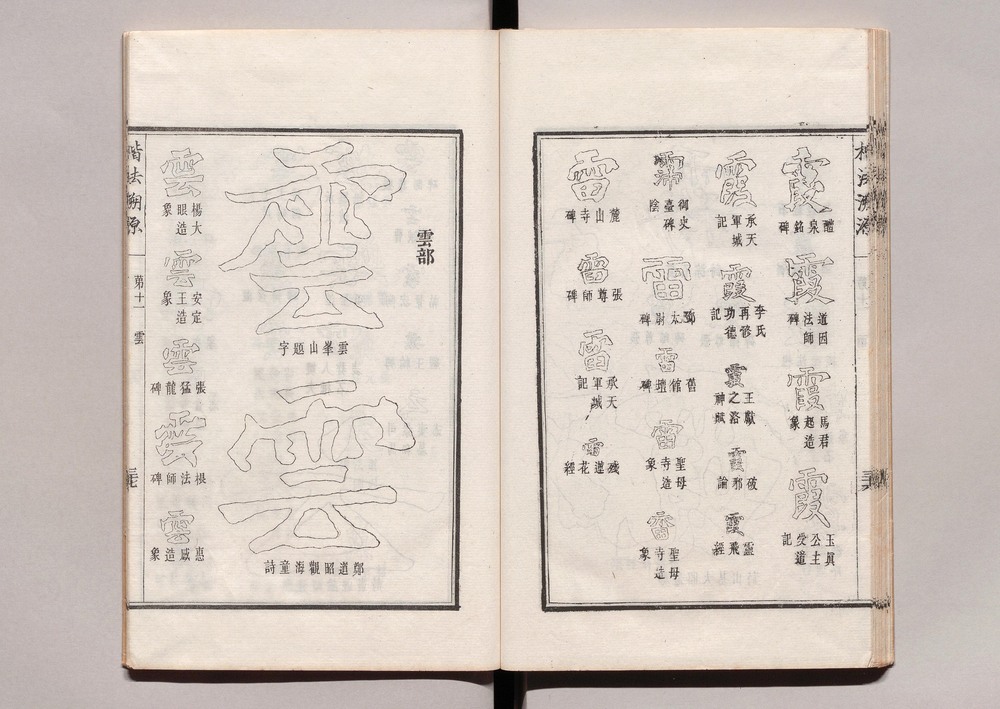 楷法溯源
霞
醴泉銘碑
霞
道因法師碑
霞
馬君起造象
霞
玉眞公主受道記
霞
承天軍城記
霞
李氏再修功德記
霞
王獻之洛神賦
霞
破邪論
霞
靈飛經
霈
御史臺碑陰
雷
雷
舊館壇碑
雷
聖母寺造象
雷
聖母寺造象
雷
麓山寺碑
雷
張尊師碑
雷
承天軍城記
雷
殘道花經
雲部
雲
雲峯山題字
雲
鄭道昭觀海童詩
雲
楊大眼造象
雲
安定王造象
雲
張猛龍碑
雲
根法師碑
雲
惠感造象
楷法溯源 第十一 雲